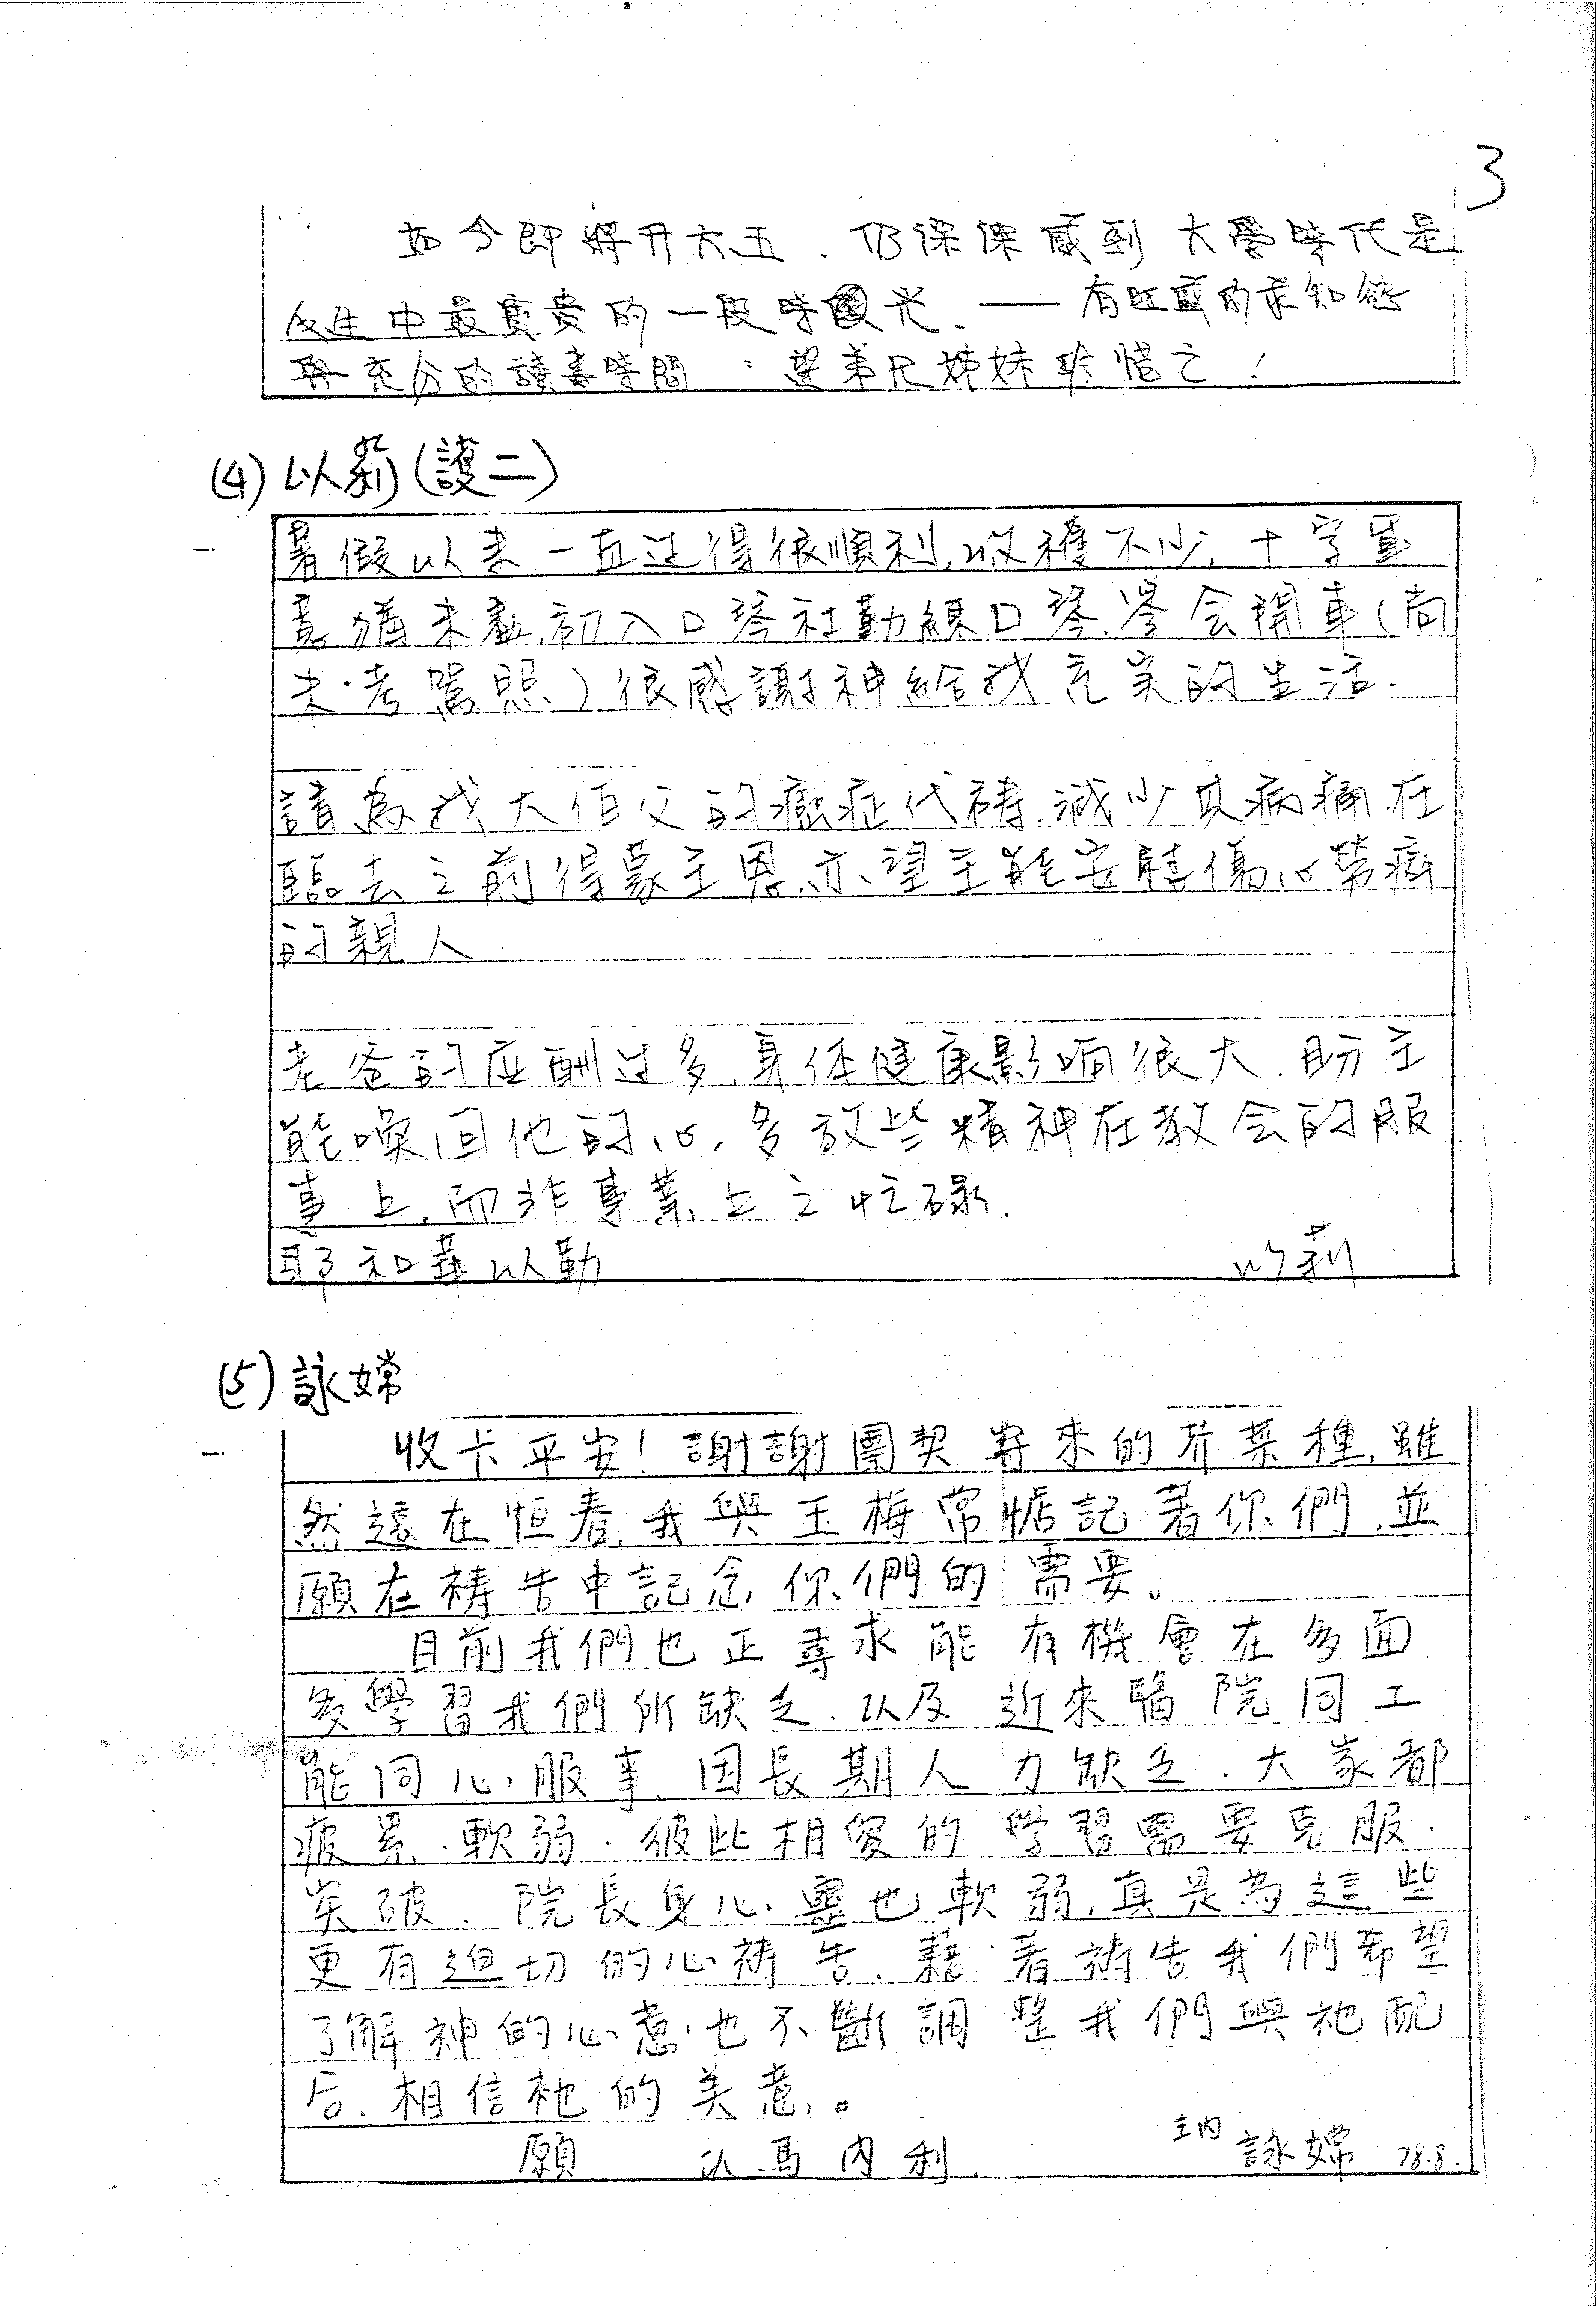 3
如今即將升大五．仍深深感到大學時代是
人生中最寶貴的一段時光．——有旺盛的求知慾
與充分的讀書時間．望弟兄姊妹珍惜之！
(4) 以莉(護二)
暑假以來一直过得很順利,收穫不少,十字軍
意猶未盡,初入口琴社勤練口琴,學会開車(尚
未考駕照)很感謝神給我充实的生活.
請為我大伯父的癌症代禱,減少其病痛,在
臨去之前得蒙主恩,亦望主能安慰傷心勞瘁
的親人
老爸的应酬过多,身体健康影响很大,盼主
能喚回他的心,多放些精神在教会的服
事上,而非事業上之忙碌.
耶和華以勒 以莉
(5) 詠嫦
收卡平安！謝謝團契寄來的芥菜種,雖
然遠在恒春,我與玉梅常惦記著你們,並
願在禱告中記念你們的需要。
目前我們也正尋求能有機會在多面
多學習我們所缺乏．以及近來醫院同工
能同心服事,因長期人力缺乏．大家都
疲累．軟弱．彼此相愛的學習需要克服．
突破．院長身心靈也軟弱,真是為這些
更有迫切的心禱告．藉著禱告我們希望
了解神的心意,也不斷調整我們與祂配
合．相信祂的美意。
願 以馬內利．
主內 詠嫦 78.8.